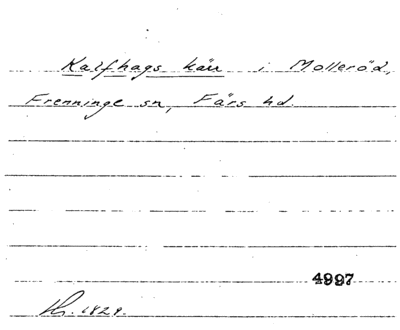 Kalfhags kärr i Molleröd,
Frenninge sn, Färs hd.
4997
1829.